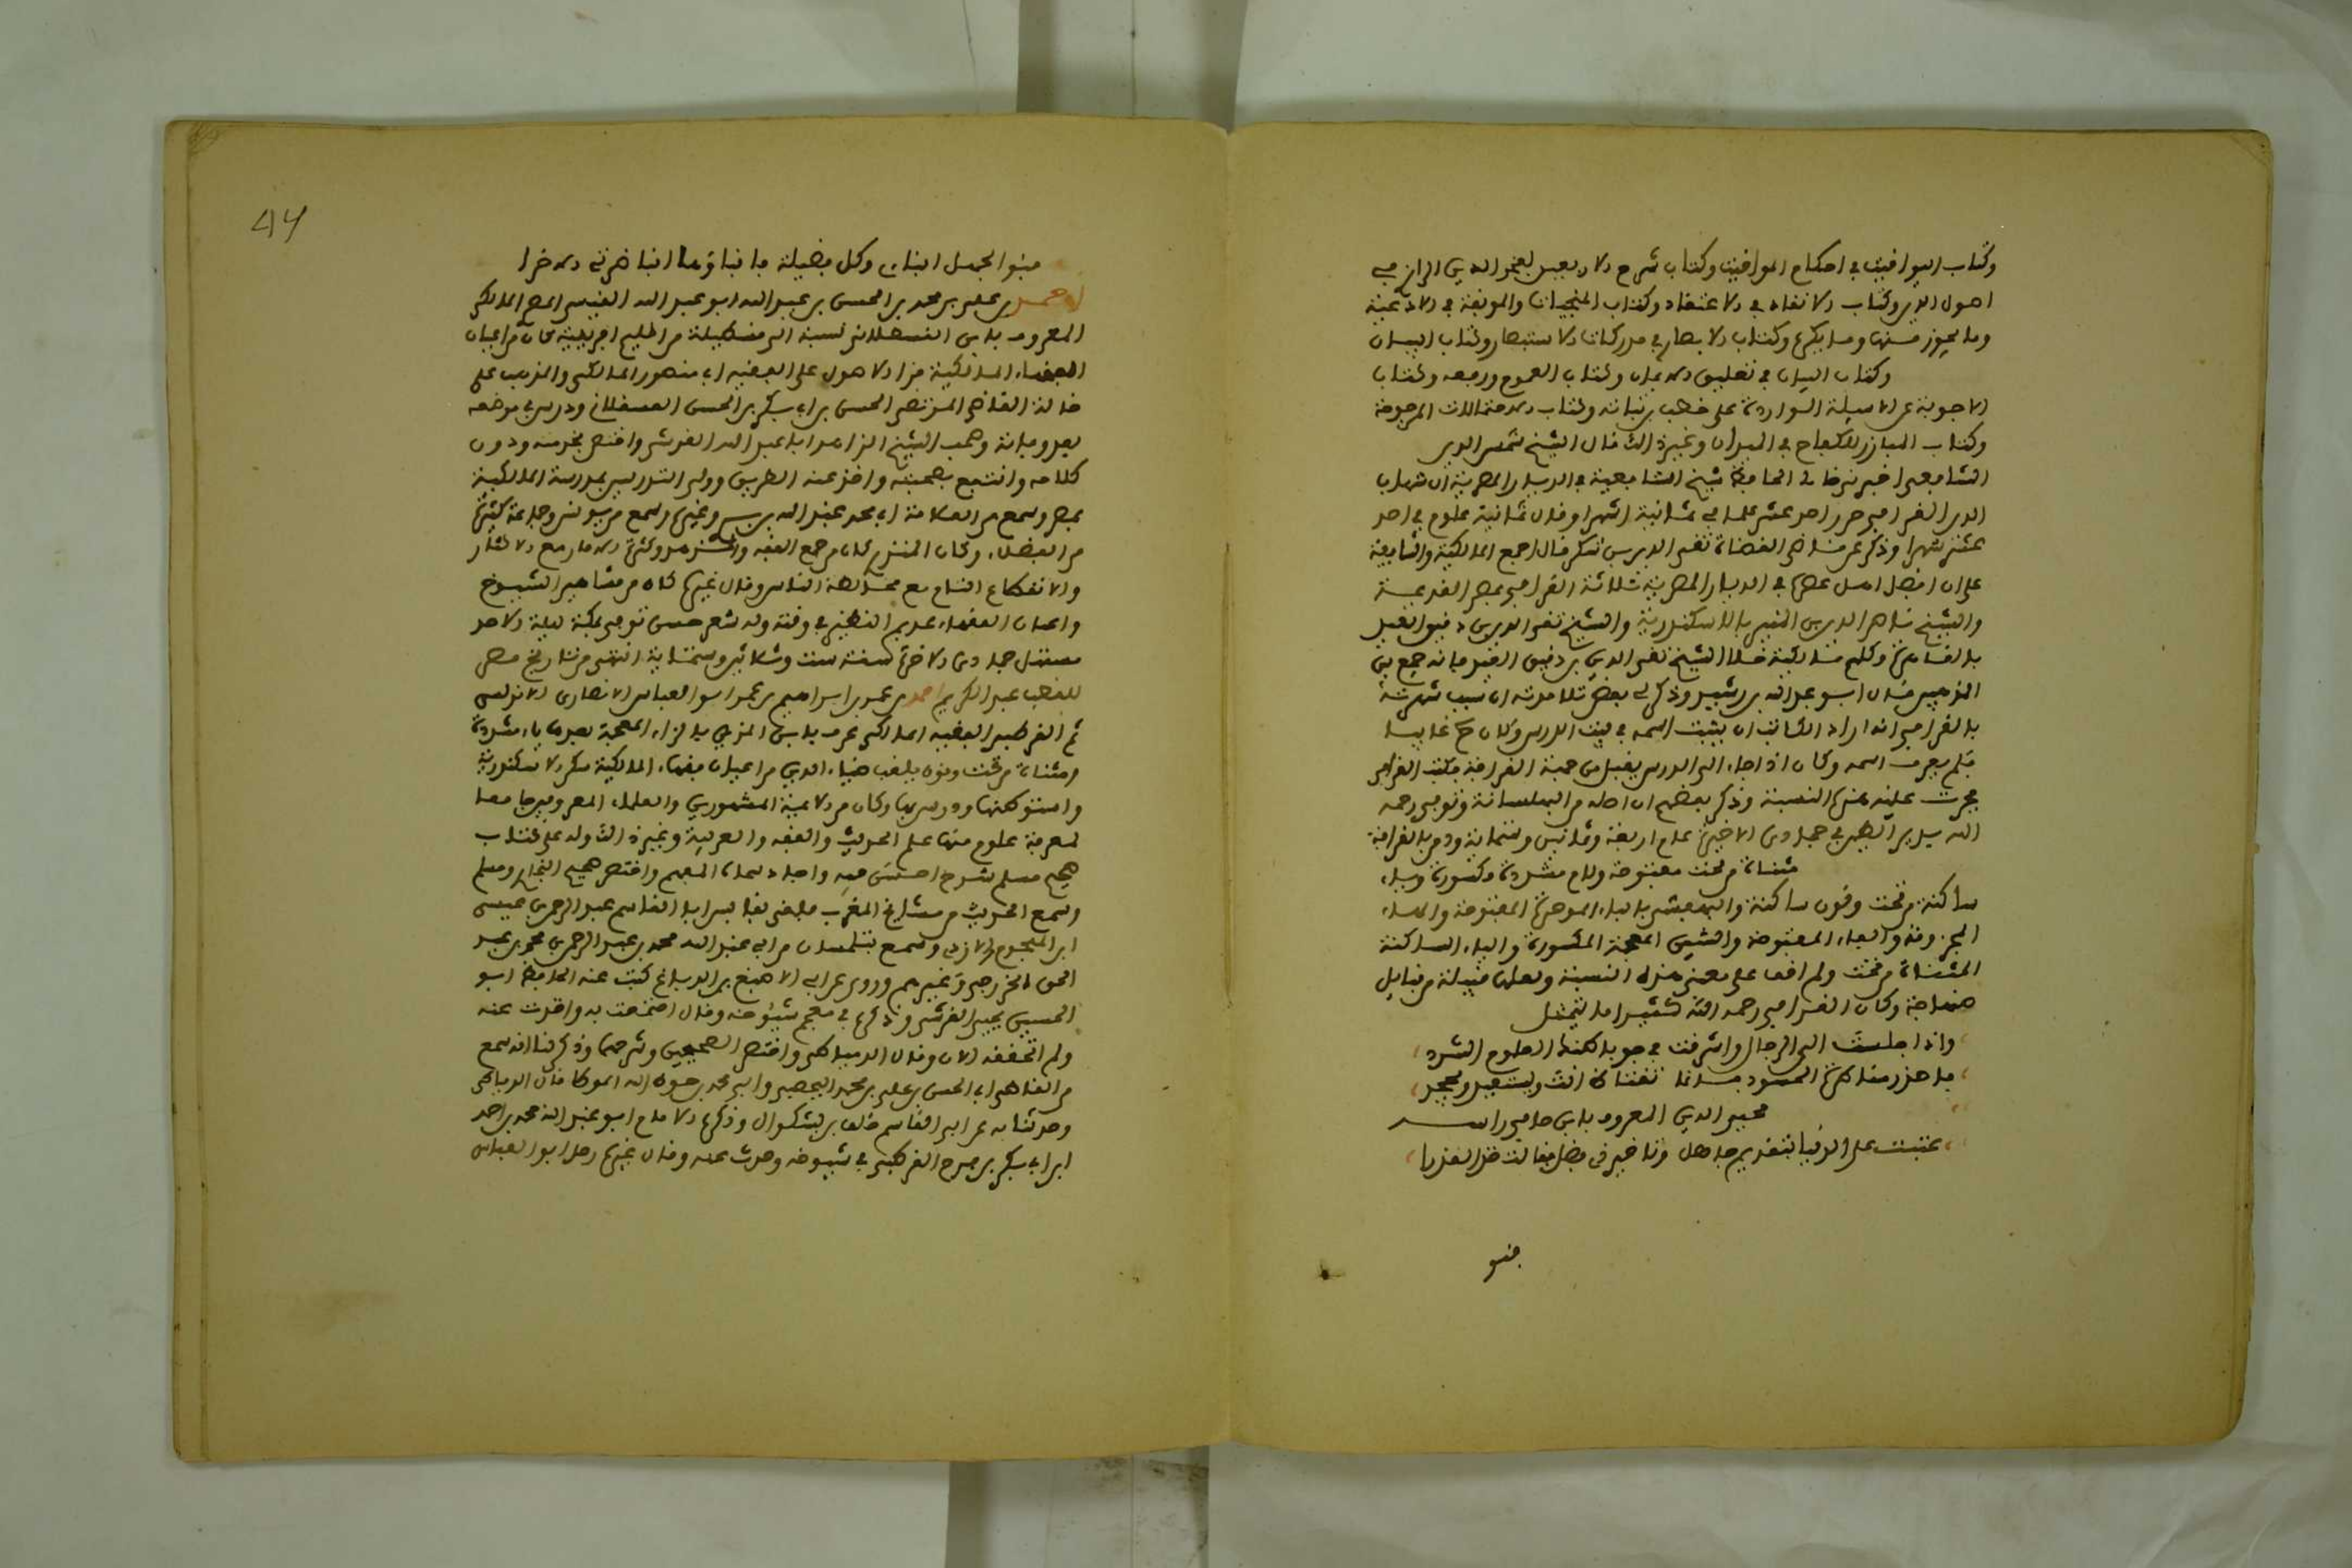 وكتاب اليواقيت في احكام المواقيت وكتاب شرح الاربعين لفخر الدين الرازي في
اصول الدين وكتاب الانقاد في الاعتقاد وكتاب المنجيات والموبقة في الادعية
وما يجوز منها وما يكره وكتاب الابصار في مدركات الابصار وكتاب البيان
وكتاب البيان في تعليق الايمان وكتاب العموم ورفعه وكتاب
الاجوبة عن الاسيلة الواردة على خطب بن نباتة وكتاب الاحتمالات المرجوحة
وكتاب البارز للكفاح في الميدان وغير ذلك قال الشيخ شمس الدين
الشافعي اخبرني خالي الحافظ شيخ الشافعية في الديار المصرية ان شهاب
الدين القرافي حرر احد عشر علما في ثمانية اشهر او قال ثمانية علوم في احد
عشر شهرا وذكر عن قاضي القضاة تقي الدين بن شكر قال اجمع المالكية والشافعية
على ان افضل اهل عصره في الديار المصرية ثلاثة القرافي بمصر القديمة
والشيخ ناصر الدين بن المنير بالاسكندرية والشيخ تقي الدين بن دقيق العيد
بالقاهرة وكلهم مالكية خلا الشيخ تقي الدين بن دقيق العيد فانه جمع بين
المذهبين قال ابو عبد الله بن رشيد وذكر لي بعض تلامذته ان سبب شهرته
بالقرافي انه اراد الكاتب ان يثبت اسمه في بيت الدرس وكان ح غايبا
فلم يعرف اسمه وكان اذا جاء الى الدرس يقبل من جهة القرافة فكتب القرافي
فجرت عليه هذه النسبة وذكر بعضهم ان اصله من البهنسا وتوفي رحمه
الله بدير الطين في جمادى الاخيرة عام اربعة وثمانين وستماية ودفن بالقرافة
مثناة من تحت مفتوحة ولام مشددة مكسورة وياء
ساكنة من تحت ونون ساكنة والبهفشيمي بالباء الموحدة المفتوحة والهاء
المجزومة والفاء المفتوحة والشين المعجمة المكسورة والياء الساكنة
المثناة من تحت ولم اقف على معنى هذه النسبة ولعلها قبيلة من قبايل
صنهاجة وكان القرافي رحمه الله كثيرا ما يتمثل
واذا جلست الى الرجال واشرقت في جو باطنك العلوم الشرد
فاحذر مناظرة الحسود فانما تغتاظ انت ويستفيد ويجحد
محيي الدين المعروف بابن حافي راسه
عتبت على الدنيا بتقديم جاهل وتاخير ذي فضل فقالت خذ العذرا
بنو
47
بنو الجهل ابناي وكل فضيلة فابناؤها ابناء ضرتي الاخرا
احمد بن علي بن محمد بن الحسن بن عبد الله ابو عبد الله القيسي المصري المالكي
المعروف بابن القسطلاني نسبة الى قسطيلة من اقليم افريقية كان من اعيان
الفقهاء المالكية قرا الاصول على الفقيه ابي منصور المالكي والمذهب على
خاله القاضي المرتضى الحسن بن ابي بكر بن الحسن العسقلاني ودرس في موضعه
بعد وفاته وصحب الشيخ الزاهد ابا عبد الله القرشي واختص بخدمته ودون
كلامه وانتفع بصحبته واخذ عنه الطريق وولي التدريس بمدرسة المالكية
بمصر وسمع من العلامة ابي محمد عبد الله بن بري وغيره وسمع من يونس وجماعة كثيرة
من الفضلاء وكان المنذري كان مرجع الفقه والزهد وكثرة الايثار مع الاقتار
والانقطاع التام مع مخالطة الناس وقال غيره كان من مشاهير الشيوخ
واعيان الفقهاء عديم النظير في وقته وله شعر حسن توفي بمكة ليلة الاحد
مستهل جمادى الاخرة سنة ست وثلاثين وستماية انتهى من تاريخ مصر
للقطب عبد الكريم احمد بن عمر بن ابراهيم بن عمر ابو العباس الانصاري الاندلسي
ثم القرطبي الفقيه المالكي عرف بابن المزين بالزاء المعجمة بعدها ياء مشددة
مثناة من تحت ونون يلقب ضياء الدين من اعيان فقهاء المالكية سكن الاسكندرية
واستوطنها ودرس بها وكان من الايمة المشهورين والعلماء المعروفين جامعا
لمعرفة علوم منها علم الحديث والفقه والعربية وغير ذلك وله على كتاب
صحيح مسلم شرح احسن فيه واجاد سماه المفهم واختصر صحيح البخاري ومسلم
وسمع الحديث من مشايخ المغرب فاخذ بفاس ابا القاسم عبد الرحمن بن عيسى
ابن الملجوم الازدي وسمع بتلمسان من ابي عبد الله محمد بن عبد الرحمن بن محمد بن عبد
الحق الخزرجي وغيرهم وروى عن ابي الاصبغ بن الدباغ كتب عنه الحافظ ابو
الحسين يحيى القرشي وذكره في معجم شيوخه وقال اجتمعت به واخذت عنه
ولم اتحققه الان وقال الدمياطي واختصر الصحيحين وشرحهما وذكر لنا انه سمع
من القاضي ابي الحسن بن علي بن محمد اليحصبي وابي محمد بن حوط الله الموطا قال الدمياطي
وحدثنا به عن ابي القاسم خلف بن بشكوال وذكره الامام ابو عبد الله محمد بن احمد
ابن ابي بكر بن فرح القرطبي في شيوخه وحدث عنه وقال غيره رحل ابو العباس